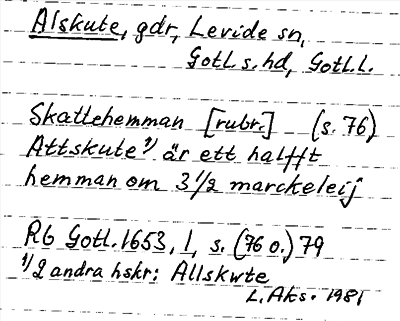 Alskute, gdr, Levide sn,
Gotl. s. hd, Gotl. l.
Skattehemman [rubr.] (s. 76)
Attskute 1) är ett halfft
hemman om 3 1/2 marckeleij
Rb Gotl. 1653, 1, s. (76 o.) 79
1) I andra hskr: Allskwte
L. Aks. 1981